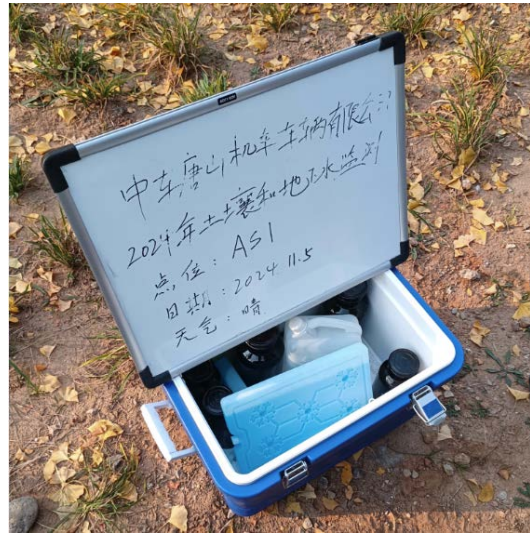 中车唐山机车车辆有限公司
2024年土壤和地下水监测
点位：AS1
日期：2024 11.5
天气：晴